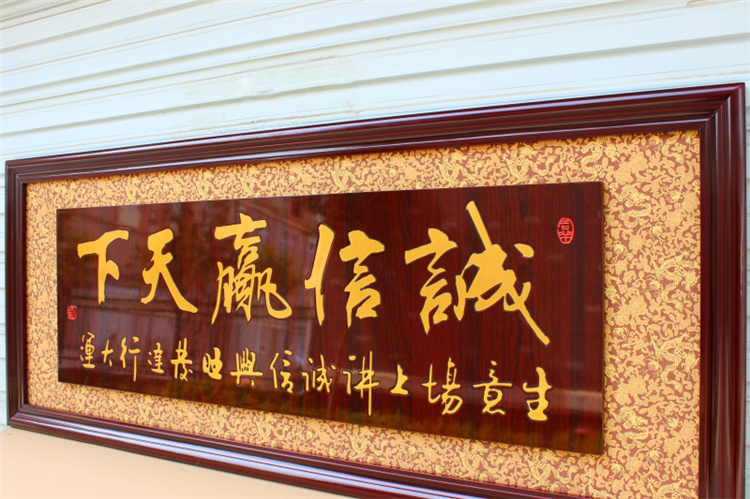 誠信贏天下
生意場上讲诚信興旺發達行大運